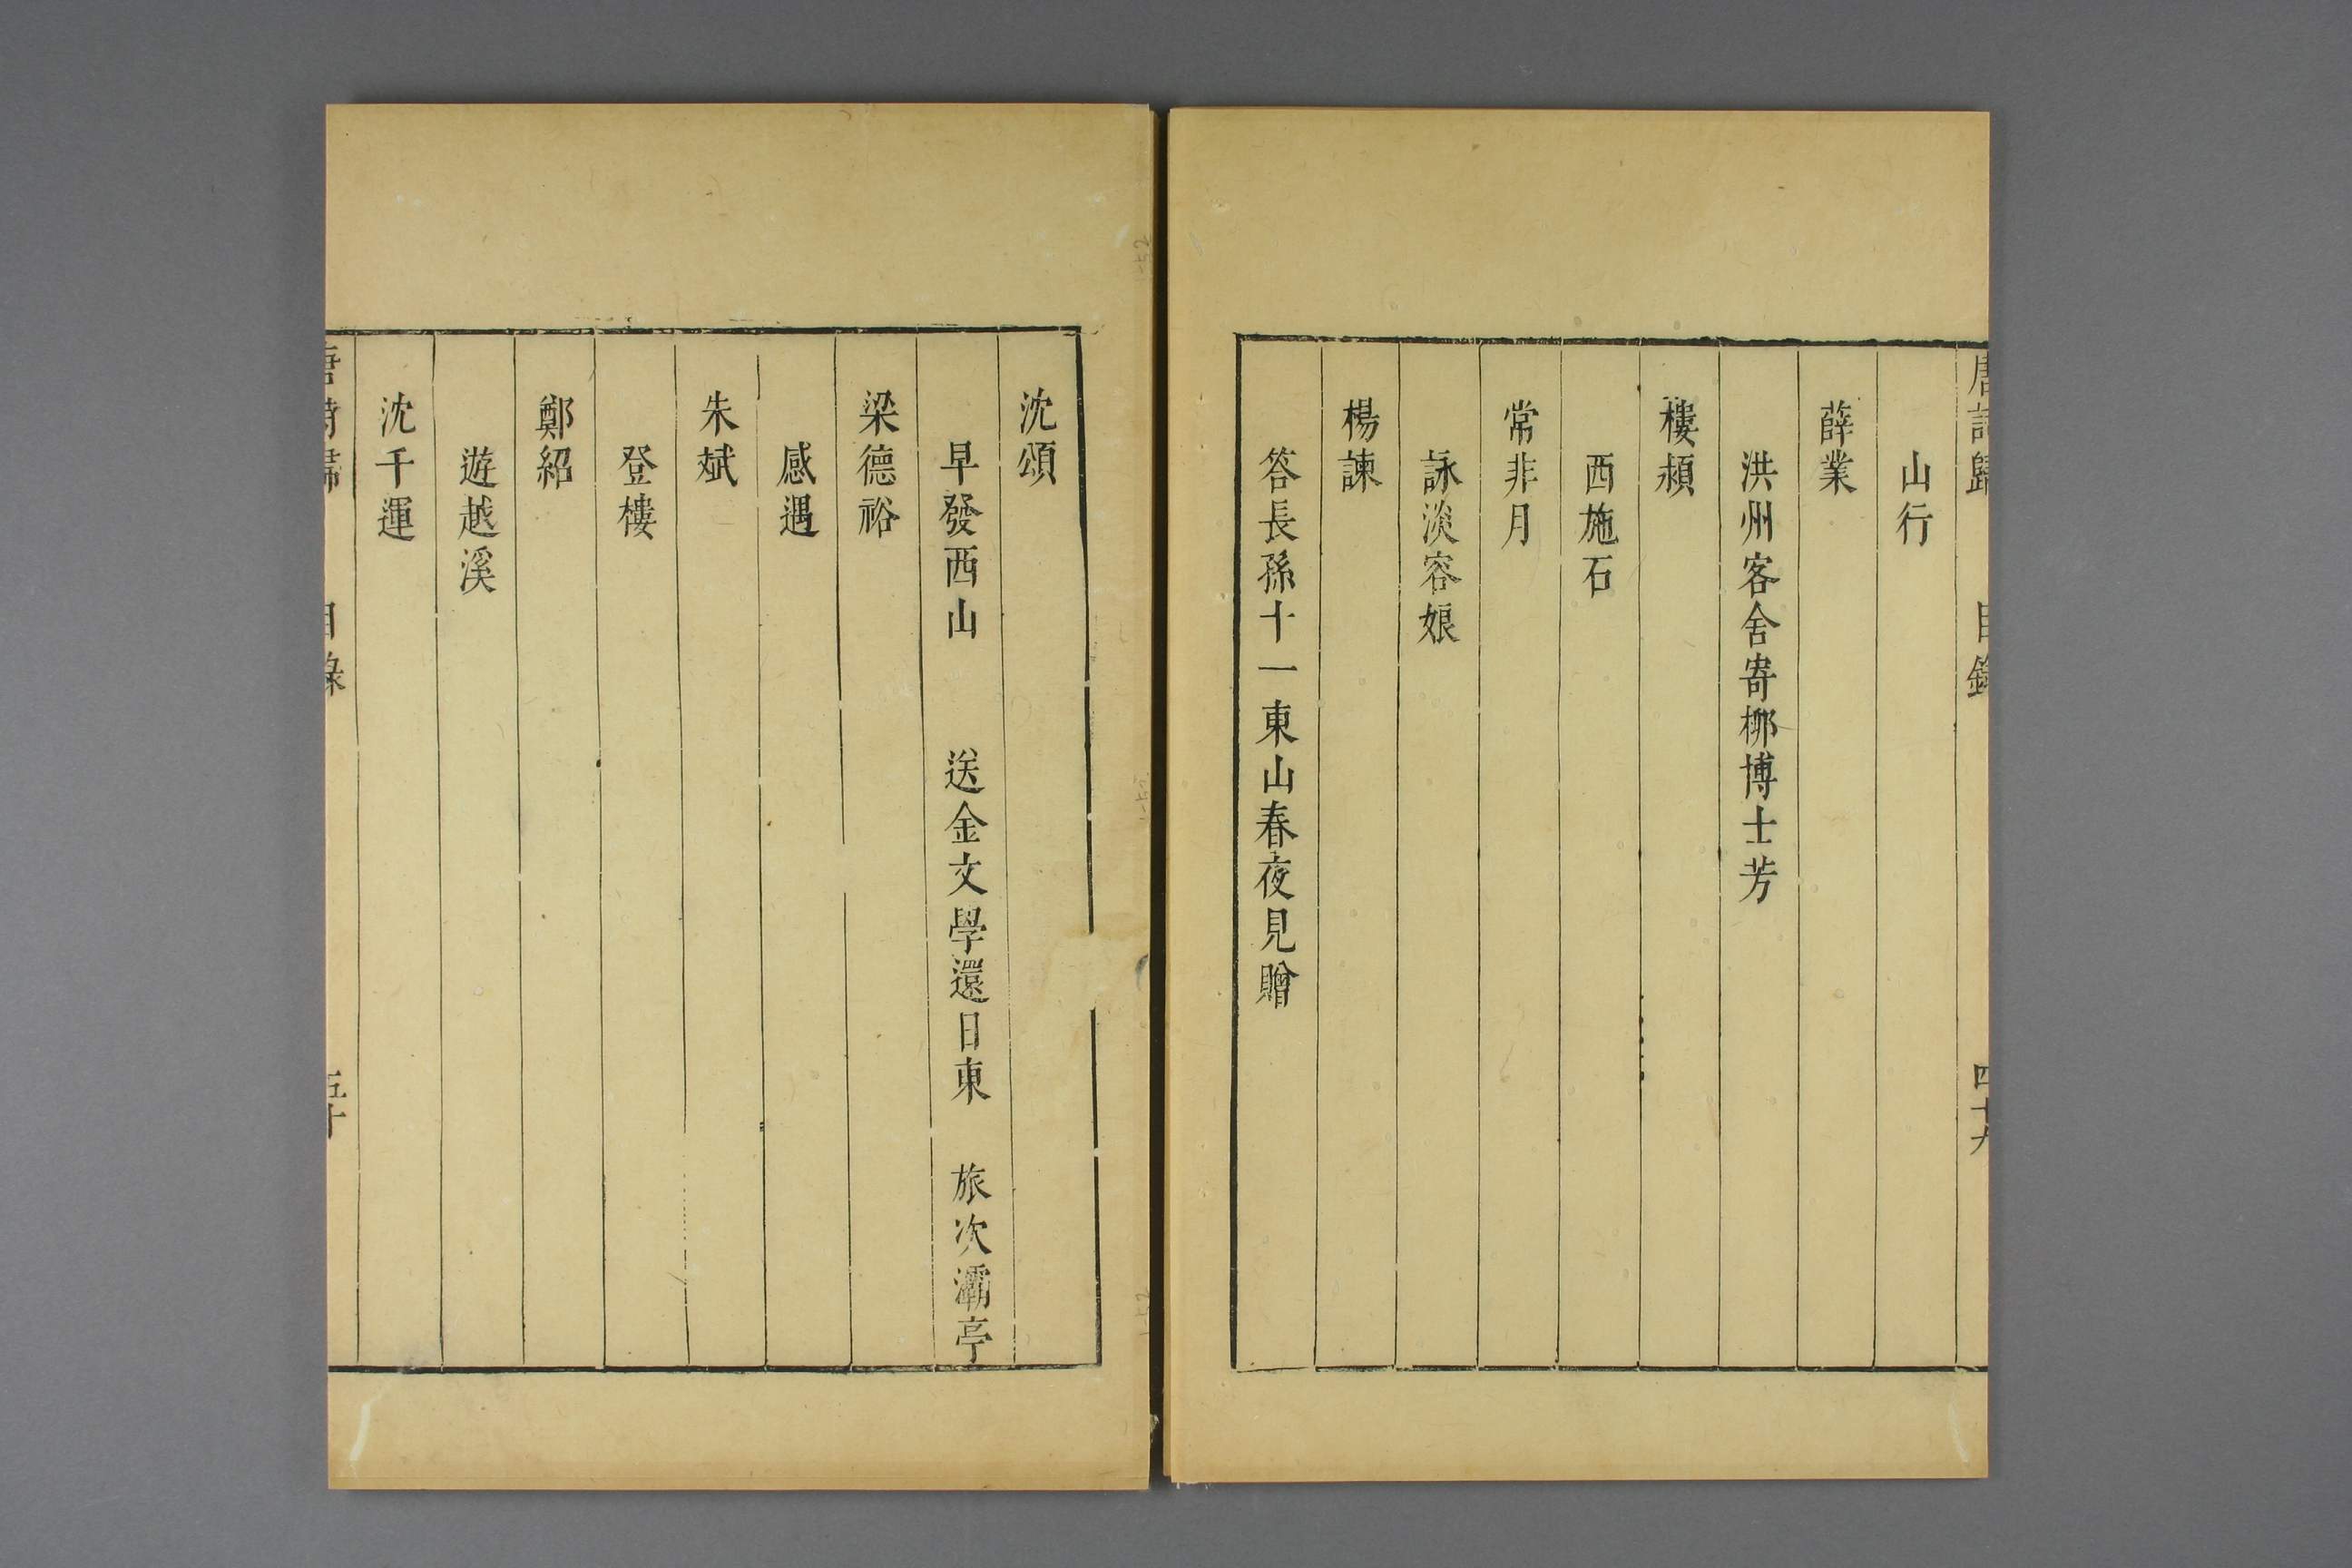 唐詩歸 目錄 四十九
山行
薛業
洪州客舍寄栁博士芳
樓頴
西施石
常非月
詠淡容娘
楊諫
答長孫十一東山春夜見贈
沈頌
早發西山 送金文學還日東 旅次灞亭
梁德裕
感遇
朱斌
登樓
鄭紹
遊越溪
沈千運
唐詩歸 目錄 五十